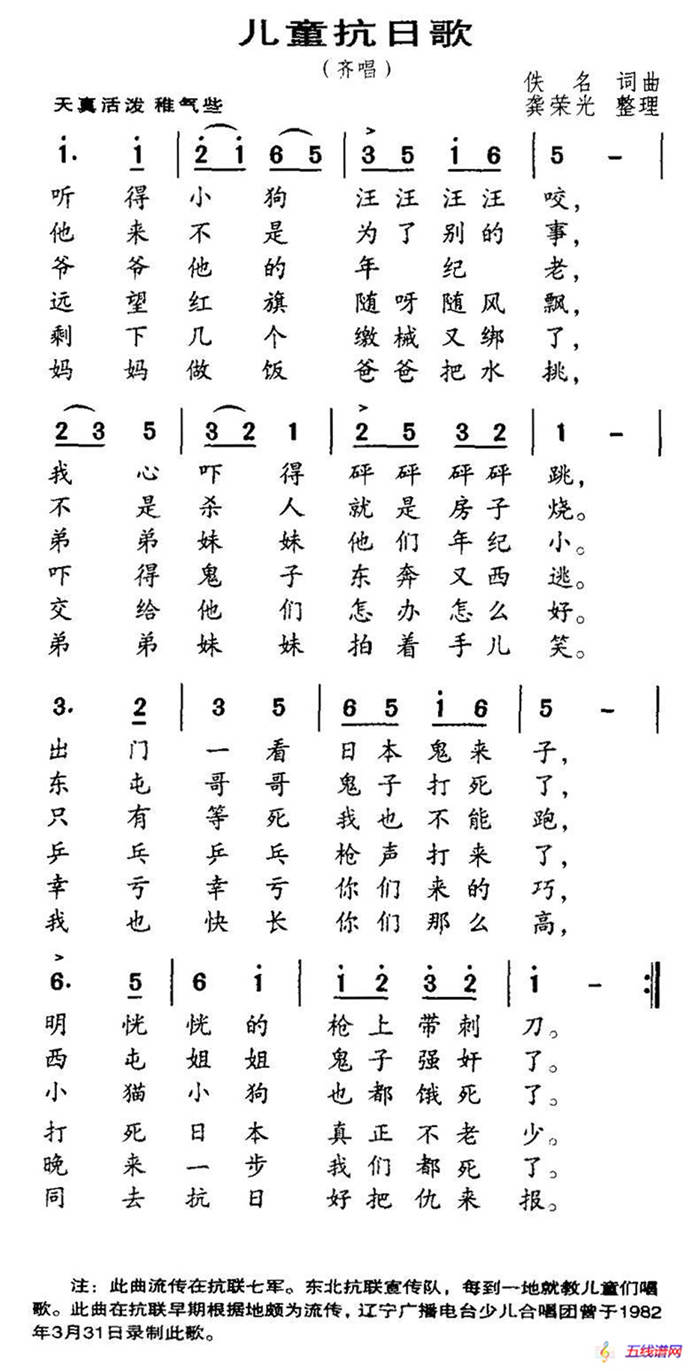 儿童抗日歌
（齐唱）
佚 名 词曲
天真活泼 稚气些
龚荣光 整理
1. 1 | 2 1 6 5 | 3 5 1 6 | 5 － |
听得小狗 汪汪汪汪咬，
他来不是 为了别的事，
爷爷他的 年纪老，
远望红旗 随呀随风飘，
剩下几个 缴械又绑了，
妈妈做饭 爸爸把水挑，
2 3 5 | 3 2 1 | 2 5 3 2 | 1 － |
我心吓得 砰砰砰砰跳，
不是杀人 就是房子烧。
弟弟妹妹 他们年纪小。
吓得鬼子 东奔又西逃。
交给他们 怎办怎么好。
弟弟妹妹 拍着手儿笑。
3. 2 | 3 5 | 6 5 1 6 | 5 － |
出门一看 日本鬼来子，
东屯哥哥 鬼子打死了，
只有等死 我也不能跑，
乒乓乒乓 枪声打来了，
幸亏幸亏 你们来的巧，
我也快长 你们那么高，
6. 5 | 6 1 | 1 2 3 2 | 1 － :||
明恍恍的 枪上带刺刀。
西屯姐姐 鬼子强奸了。
小猫小狗 也都饿死了。
打死日本 真正不老少。
晚来一步 我们都死了。
同去抗日 好把仇来报。
注：此曲流传在抗联七军。东北抗联宣传队，每到一地就教儿童们唱
歌。此曲在抗联早期根据地颇为流传，辽宁广播电台少儿合唱团曾于1982
年3月31日录制此歌。
五线谱网